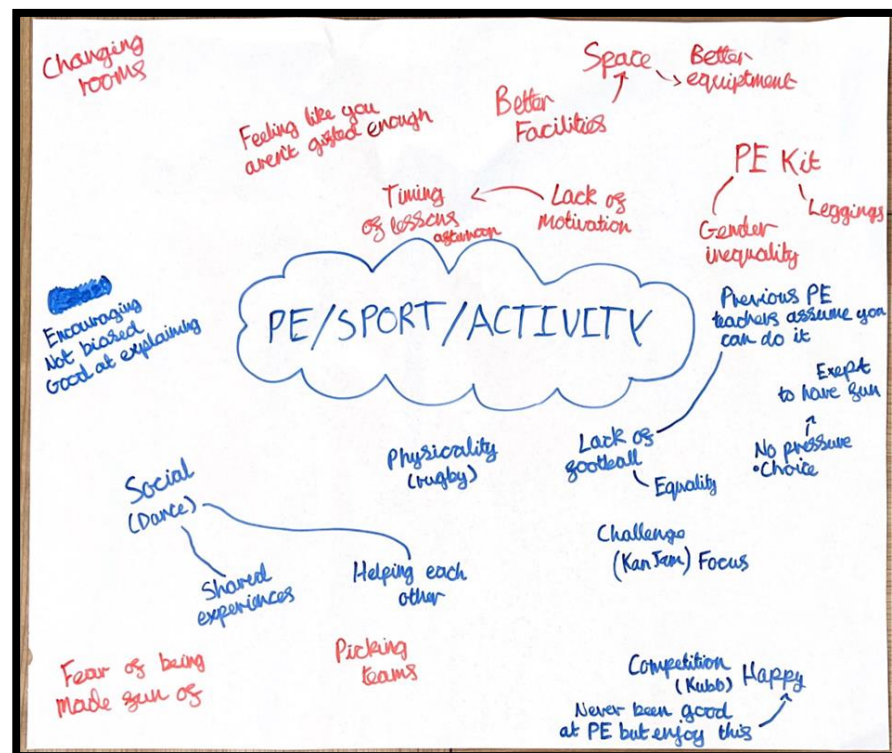 Changing
rooms
Feeling like you
aren't gifted enough
Space
Better
equiptment
Better
Facilities
PE Kit
Leggings
Gender
inequality
Timing
of lessons
afternoon
Lack of
Motivation
PE/SPORT/ACTIVITY
Encouraging
Not biased
Good at explaining
Previous PE
teachers assume you
can do it
Exept
to have fun
No pressure
•Choice
Physicality
(rugby)
Lack of
football
Equality
Social
(Dance)
Shared
experiences
Helping each
other
Challenge
(KanJam) Focus
Fear of being
made fun of
Picking
teams
Competition
(Kubb) Happy
Never been good
at PE but enjoy this